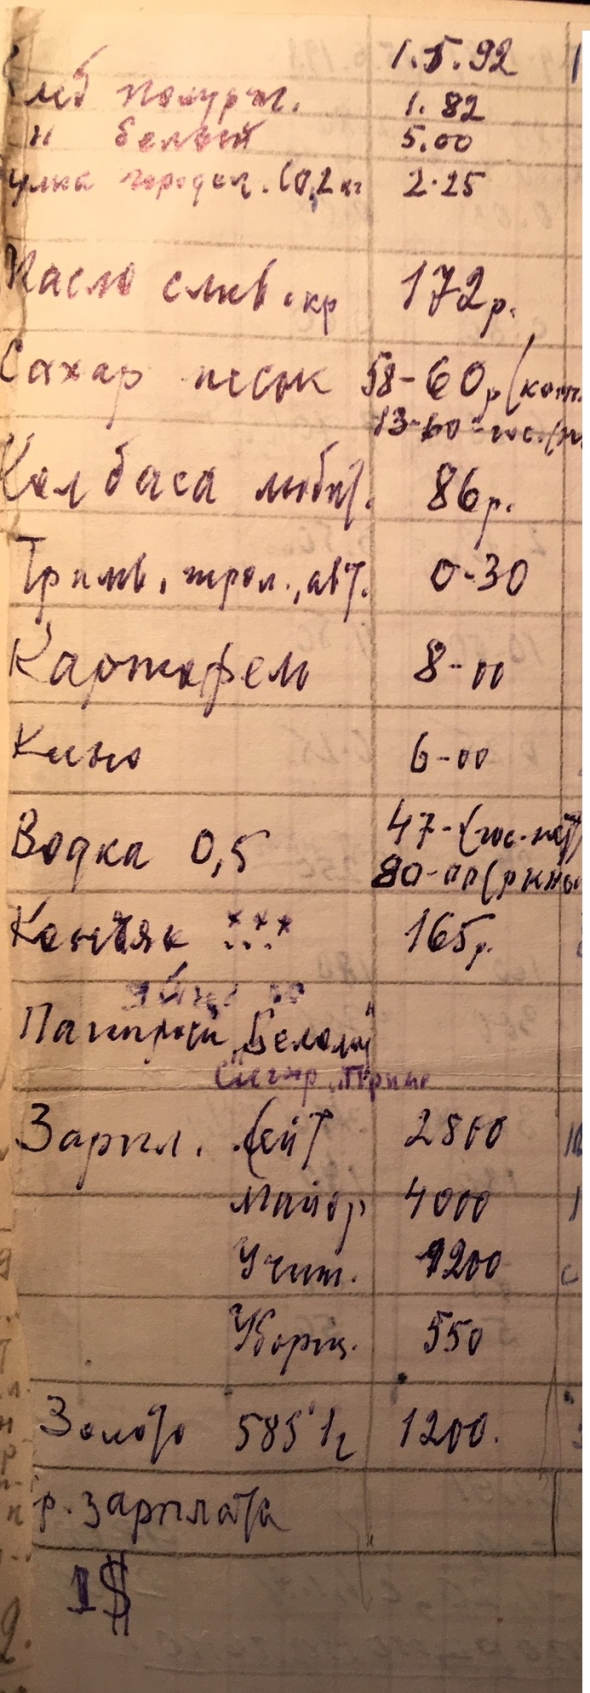 1.5.92
Хлеб полурж. 1.82
" белый 5.00
булка городск. (0,2 кг 2.25
Масло слив. кр 172р.
Сахар песок 58-60р (ком.
13-60 - гос.
Колбаса любит. 86р.
Трамв, трол., авт. 0-30
Картофель 8-00
Кино 6-00
Водка 0,5 47- (гос-нет)
80-00 (рынок
Коньяк *** 165р.
яблоко
Папиросы "Беломор"
Сигар. "Прима
Зарпл. Лейт 2800
Майор 4000
Учит. 1200
Уборщ. 550
Золото 585° 1г 1200.
р. зарплата
1$